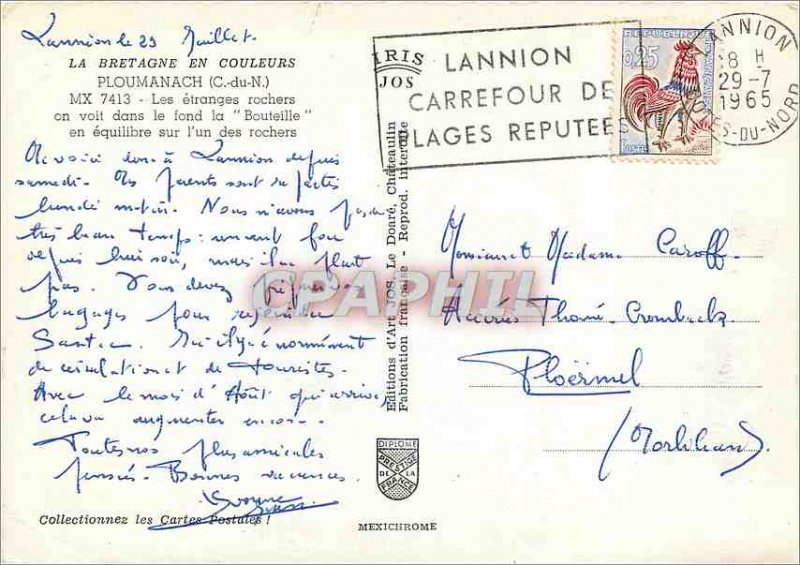 Lannion le 29 Juillet.
LA BRETAGNE EN COULEURS
PLOUMANACH (C.-du-N.)
MX 7413 - Les étranges rochers
on voit dans le fond la "Bouteille"
en équilibre sur l'un des rochers
Me voici donc à Lannion depuis
samedi. Mes Parents sont repartis
lundi matin. Nous n'avons pas eu
très beau temps: un vent fou
depuis hier soir, mais il ne pleut
pas. Vous devez préparer vos
bagages pour rejoindre
Santec. Ici il y a énormément
de circulation et de touristes.
Avec le mois d'Août qui arrive,
cela va augmenter encore.
Toutes nos plus amicales
pensées. Bonnes vacances.
Yvonne
Collectionnez les Cartes Postales !
IRIS
JOS
LANNION
CARREFOUR DE
PLAGES REPUTEES
REPUBLIQUE FRANÇAISE
0,25
POSTES
LANNION
18 H
29-7
1965
COTES-DU-NORD
Editions d'Art JOS, Le Doaré, Châteaulin
Fabrication française - Reprod. interdite
CPAPHIL
DIPLOME
PRESTIGE
DE LA
FRANCE
MEXICHROME
Monsieur et Madame Caroff.
Ploërmel
(Morbihan).